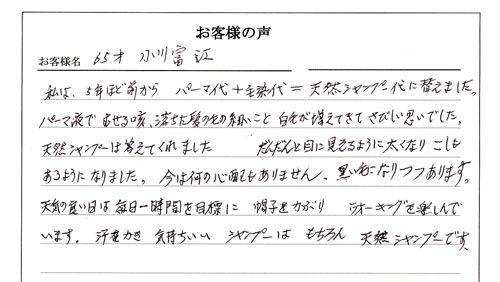 お客様の声
お客様名 65才 小川富江
私は、5年ほど前から パーマ代＋毛染代＝天然シャンプー代に替えました。
パーマ液でむせる咳、落ちた髪の毛の細いこと 白毛が増えてきてさびしい思いでした。
天然シャンプーは答えてくれました だんだんと目に見えるように太くなり こしも
あるようになりました。今は何の心配もありません、黒い毛になりつつあります。
天気の良い日は毎日一時間を目標に 帽子をかぶり ウオーキングを楽しんで
います。汗をかき 気持ちいい シャンプーは もちろん 天然シャンプーです。